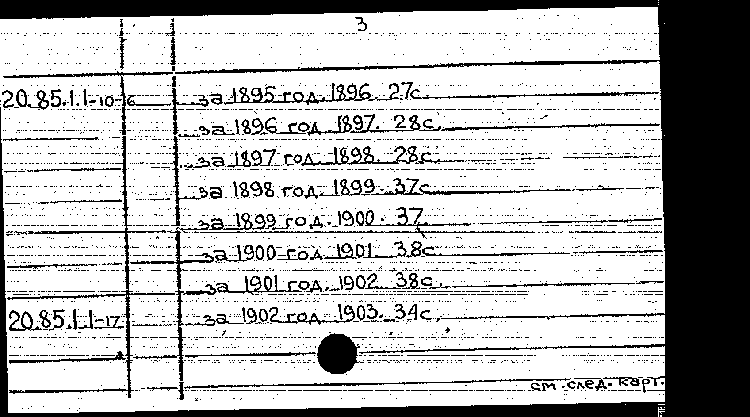 3
20.85.1.1-10-16 за 1895 год. 1896. 27с.
за 1896 год 1897. 28с.
за 1897 год 1898. 28с.
за 1898 год. 1899. 37с.
за 1899 год. 1900. 37
за 1900 год 1901. 38с.
за 1901 год. 1902. 38с.
20.85.1.1-17 за 1902 год. 1903. 34с.
см. след. карт.